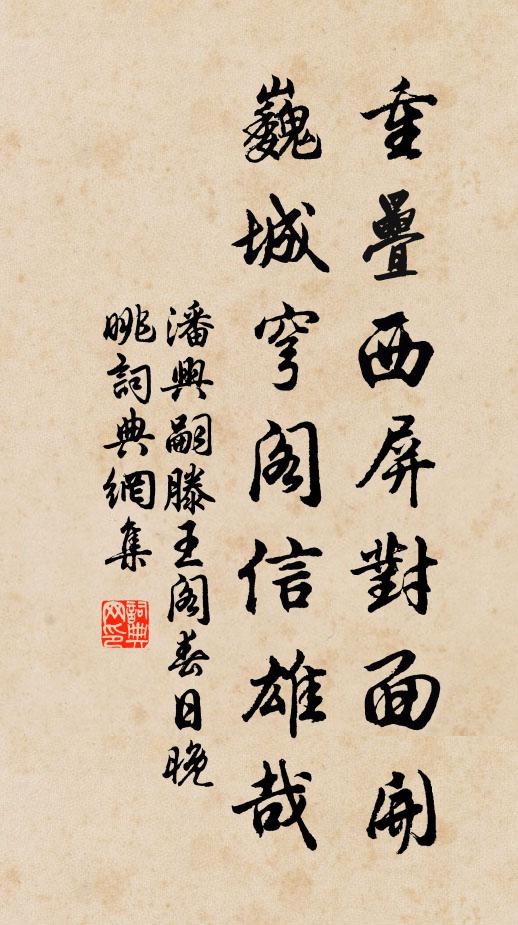 重疊西屏對面開
巍城穹阁信雄哉
潘興嗣滕王阁春日晚
眺詞典網集
詞典网印